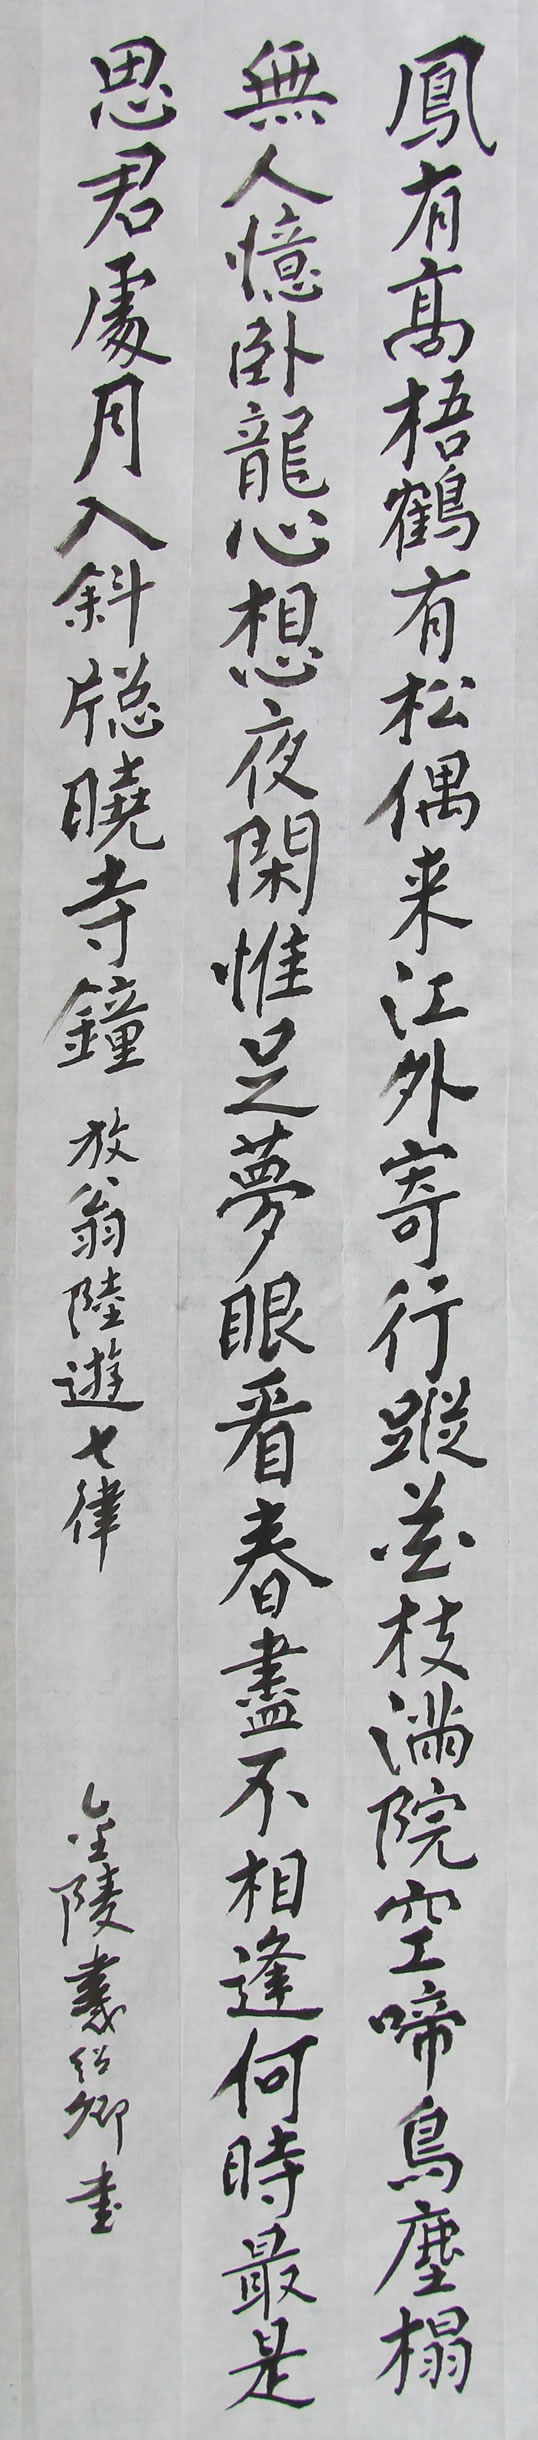 鳳有高梧鶴有松偶来江外寄行蹤花枝滿院空啼鳥塵榻
無人憶卧龍心想夜閑惟足夢眼看春盡不相逢何時最是
思君處月入斜牕曉寺鐘
放翁陸遊七律
金陵 紹卿書